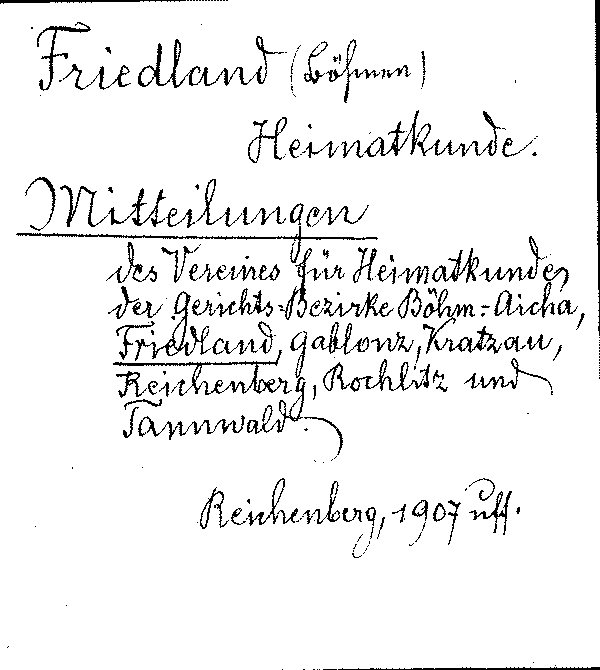 Friedland (Böhmen)
Heimatkunde.
Mitteilungen
des Vereines für Heimatkunde
der Gerichts-Bezirke Böhm.-Aicha,
Friedland, Gablonz, Kratzau,
Reichenberg, Rochlitz und
Tannwald.
Reichenberg, 1907 uff.